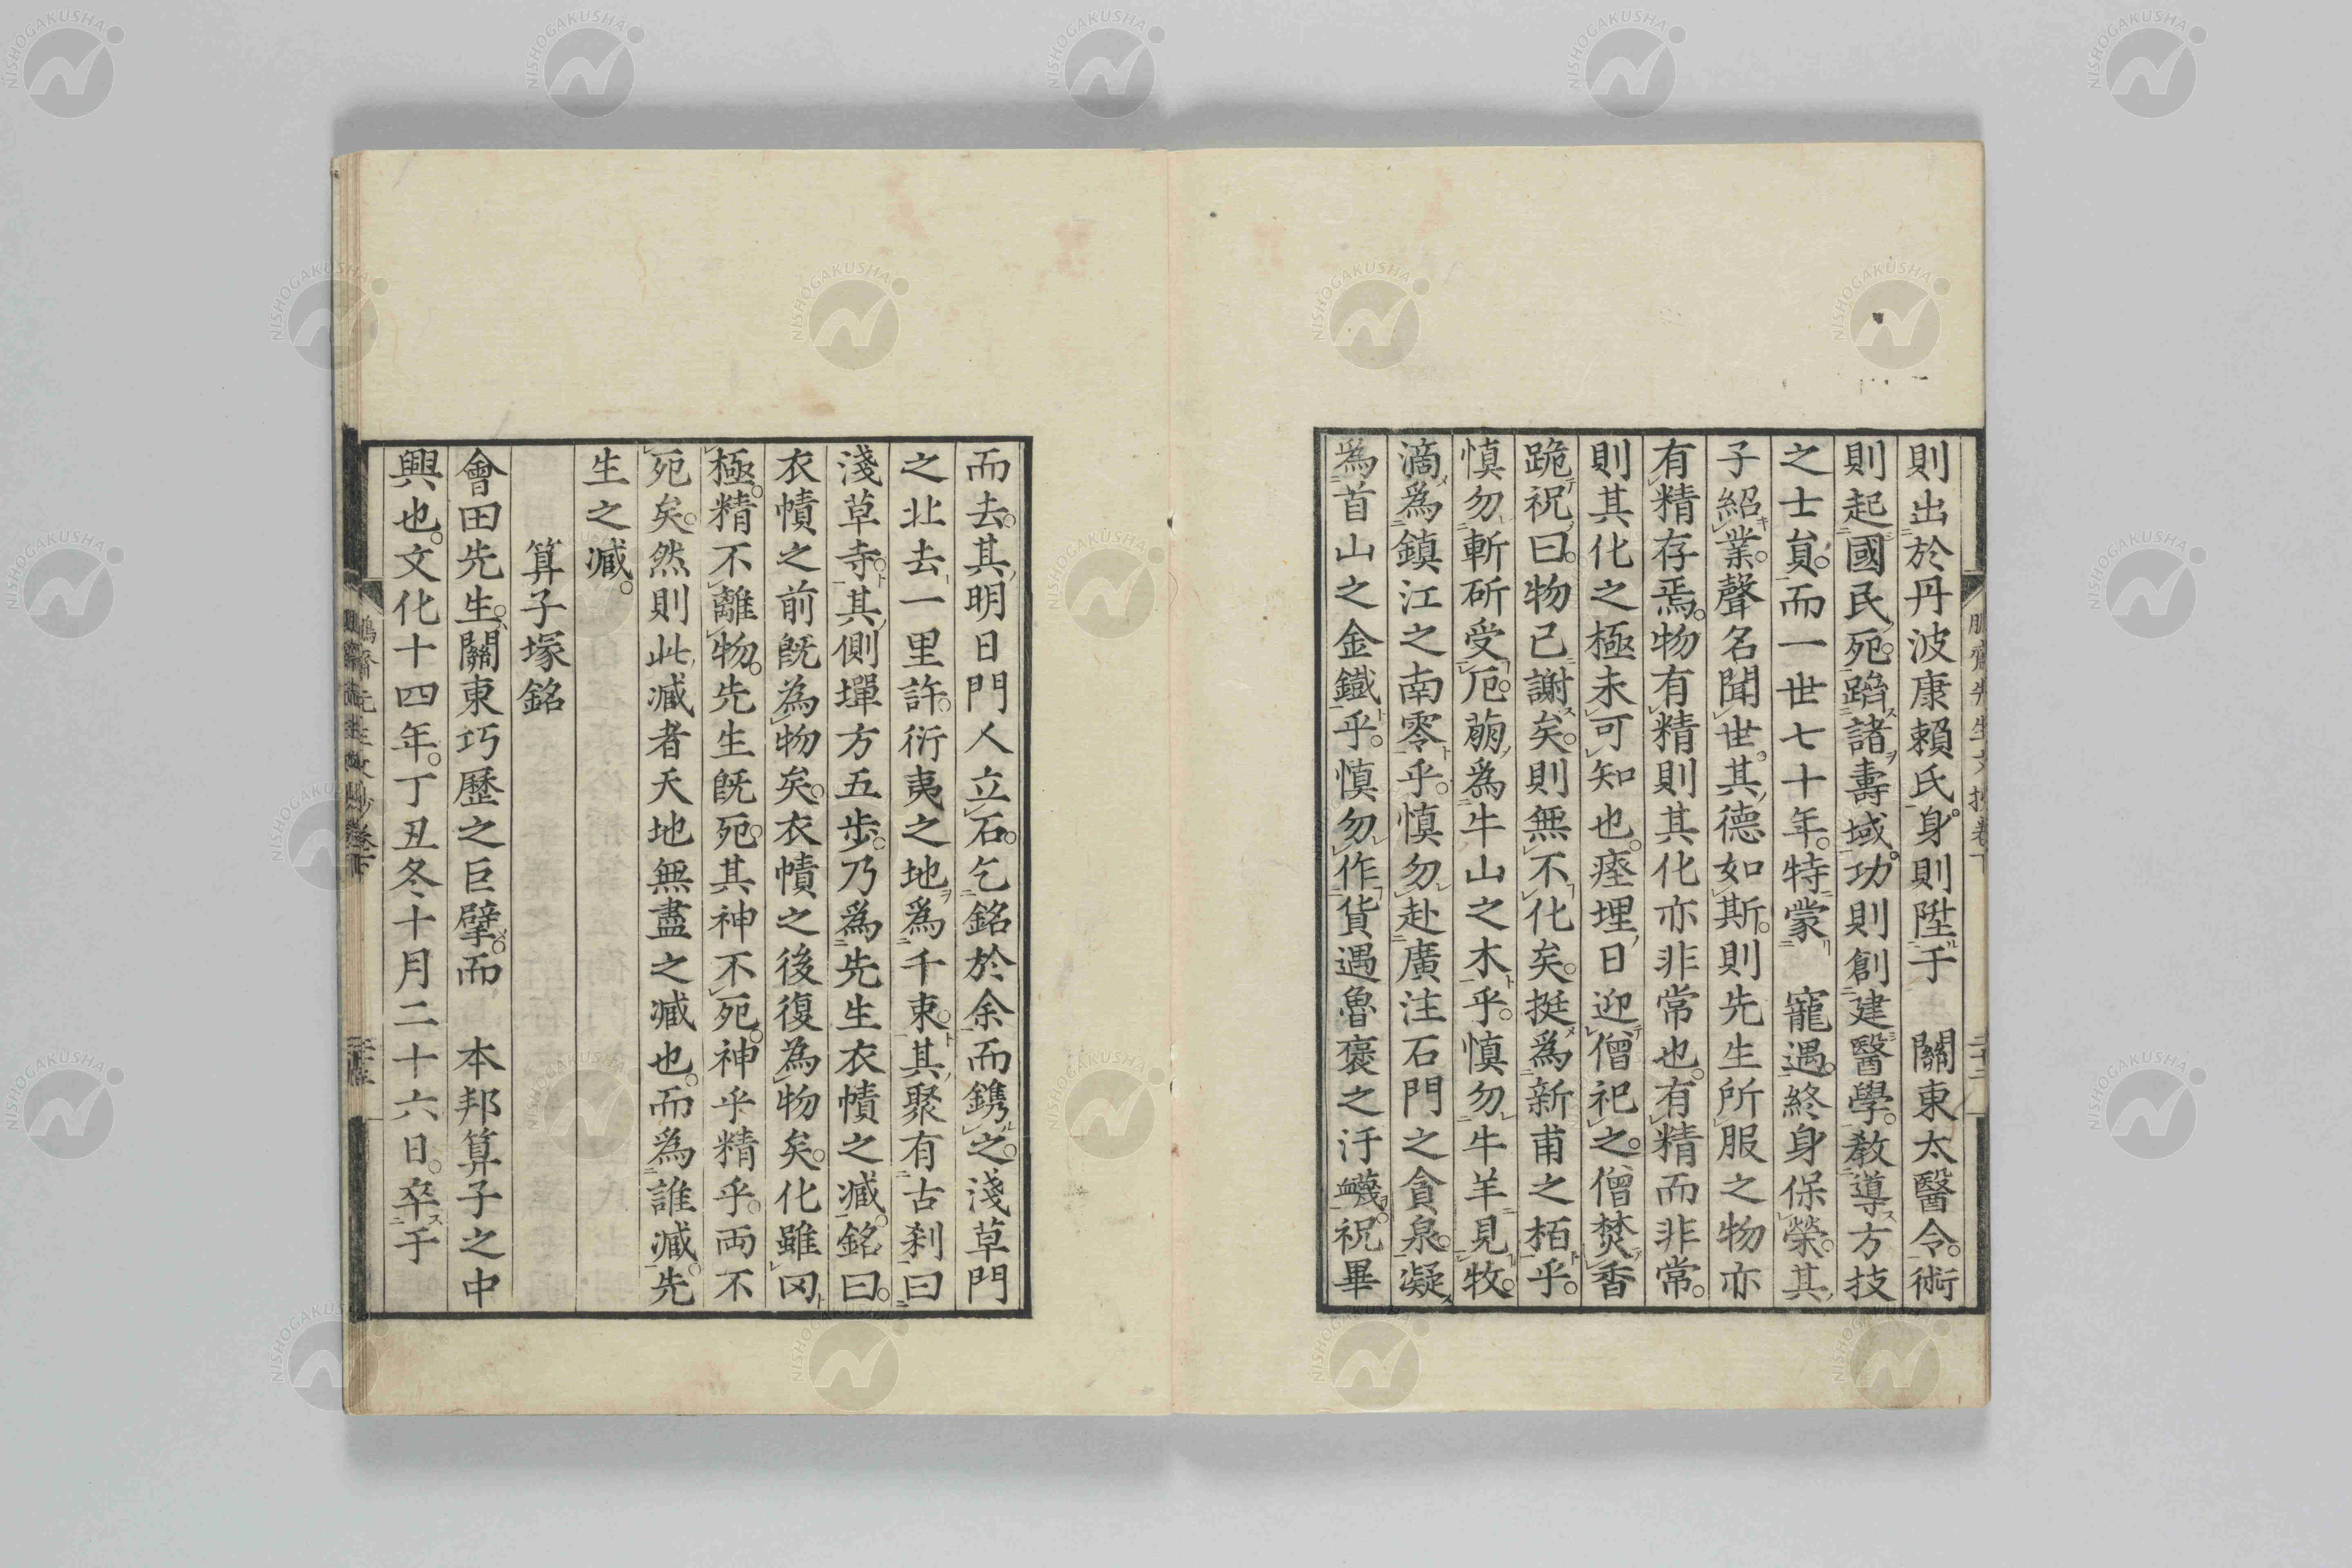 則出於丹波康賴氏。身則陞于　關東太醫令。術
則起國民死。躋諸壽域。功則創建醫學。敎導方技
之士負。而一世七十年。特蒙　寵遇。終身保榮。其
子紹業。聲名聞世。其德如斯。則先生所服之物亦
有精存焉。物有精則其化亦非常也。有精而非常。
則其化之極未可知也。瘞埋日迎僧祀之。僧焚香
跪祝曰。物已謝矣。則無不化矣。挺爲新甫之栢乎。
慎勿斬斫受厄。萠爲牛山之木乎。慎勿牛羊見牧。
滴爲鎮江之南零乎。慎勿赴廣注石門之貪泉。凝
爲首山之金鐵乎。慎勿作貨遇魯褒之汙衊。祝畢
鵬齋先生文抄卷下
而去。其明日門人立石。乞銘於余而鐫之。淺草門
之北去一里許。衍夷之地爲千束。其聚有古刹曰
淺草寺。其側墠方五步。乃爲先生衣幘之臧。銘曰。
衣幘之前旣為物矣。衣幘之後復為物矣。化雖罔
極。精不離物。先生旣死。其神不死。神乎精乎。両不
死矣。然則此臧者天地無盡之臧也。而爲誰臧。先
生之臧。
算子塚銘
會田先生。關東巧歷之巨擘。而　本邦算子之中
興也。文化十四年。丁丑冬十月二十六日。卒于
鵬齋先生文抄卷下
NISHOGAKUSHA